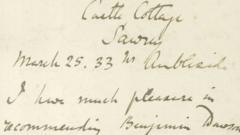 Castle Cottage
Sawrey
March 25. 33 Nr Ambleside
I have much pleasure in
recommending Benjamin Dawson